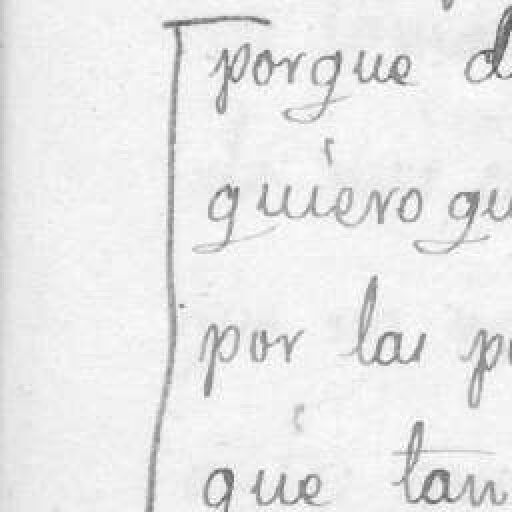 porque d
quiero qu
por las p
que tan